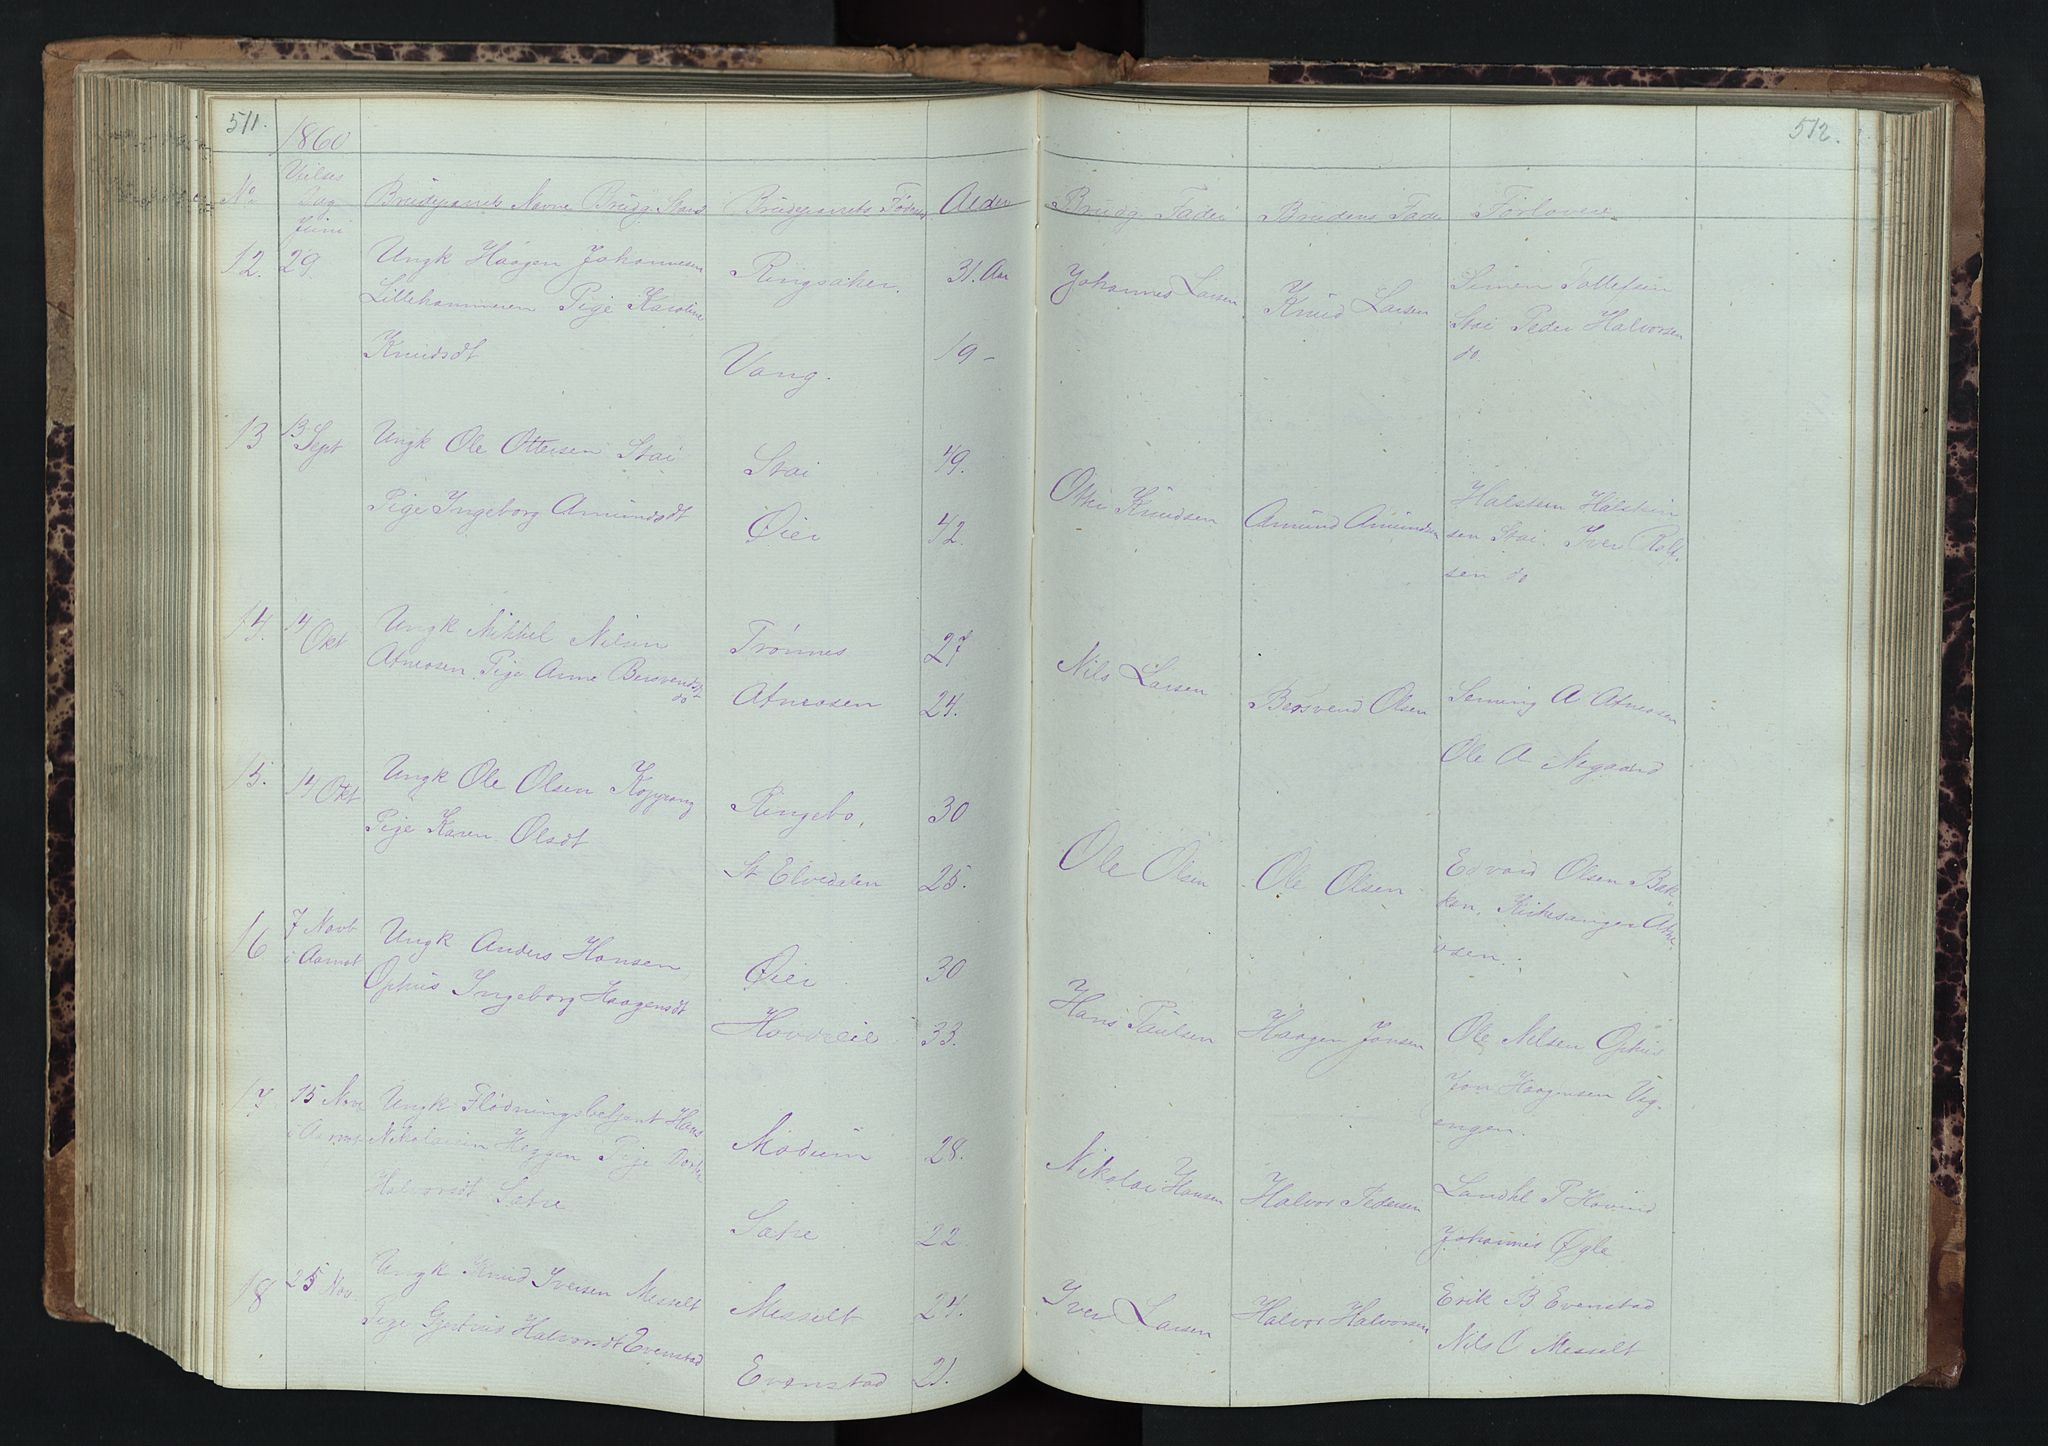 511.
1860
No
Vielses
Dag
Brudeparrets Navne Brudg. Stand
Brudeparrets Fødested
Alder
Juni
12.
29.
Ungk Haagen Johannesen
Lillehammeren Pige Karoline
Knudsdt
Ringsaker.
Vang.
31. Aar
19 -
13
13 Sept
Ungk Ole Ottersen Stai
Pige Ingeborg Amundsdt
Stai
Øier
49.
42.
14.
14 Okt
Ungk Mikkel Nilsen
Atneosen. Pige Anne Bersvendsdt
do
Trønnes
Atneosen
27
24.
15.
14 Okt
Ungk Ole Olsen Koppang
Pige Karen Olsdt
Ringebo.
St Elvedalen
30
25.
16
7 Novb
i Aamot
Ungk Anders Hansen
Ophus Ingeborg Haagensdt
Øier
30
33.
17
15 Nov
i Aamot
Ungk Flødningsbetjent Hans
Nikolaisen Heggen Pige
Halvorsdt Sætre
Modum
Sætre
28.
22
18
25 Nov.
Ungk Knud Iversen Messelt
Pige Gjertrus Halvorsdt Evenstad
Messelt
Evenstad
24.
21.
512.
Brudg. Fader
Brudens Fader
Forlovere
Johannes Larsen
Knud Larsen
Simen Tollefsen
Stai Peder Halvorsen
do
Otter Knudsen
Amund Amundsen
Halsten Halsten
sen Stai. Iver Rolf
sen do
Nils Larsen
Bersvend Olsen
Seming A Atneosen
Ole A Negaard
Ole Olsen
Ole Olsen
Edvard Olsen Bak
ken. Kirkesanger Atne
osen.
Hans Paulsen
Haagen Jonsen
Ole Nilsen Ophus
Jon Haagensen Vig
engen.
Nikolai Hansen
Halvor Pedersen
Landhl P Hovind
Johannes Øgle
Iver Larsen
Halvor Halvorsen
Erik B Evenstad
Nils O Messelt